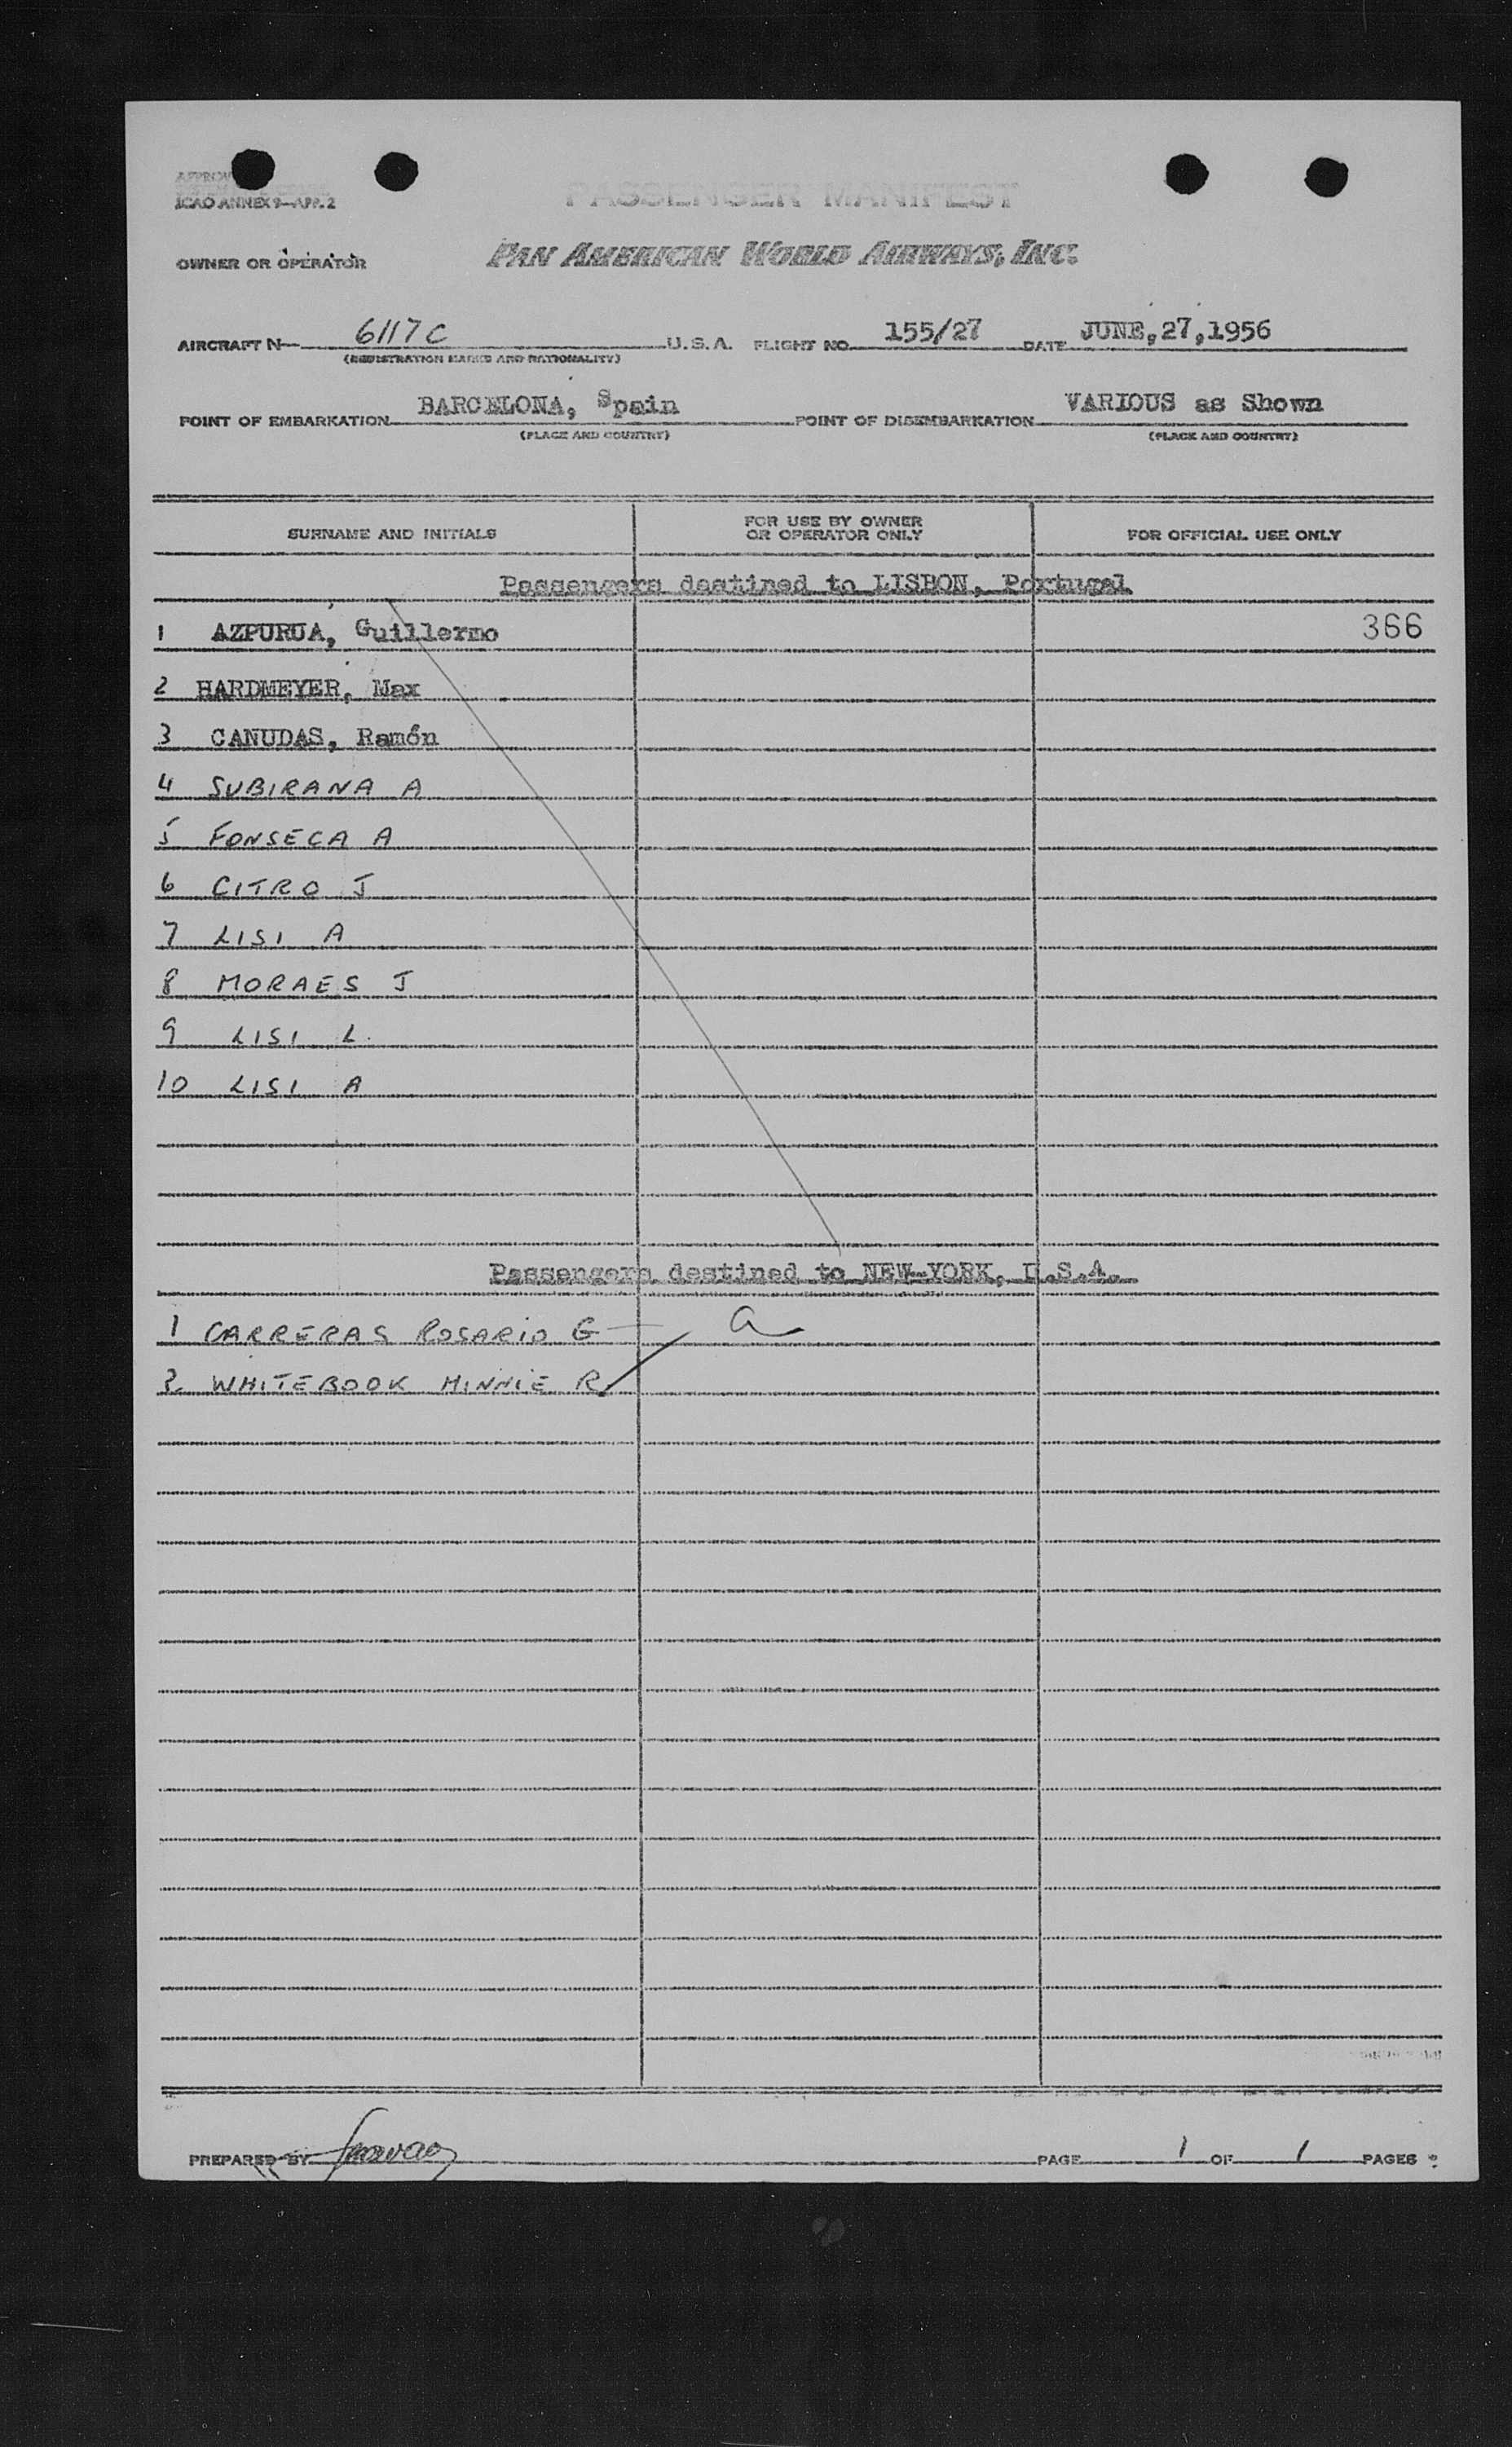 ICAO ANNEX 9—APP. 2
PASSENGER MANIFEST
OWNER OR OPERATOR PAN AMERICAN WORLD AIRWAYS, INC.
AIRCRAFT N— 6117C U.S.A. FLIGHT NO. 155/27 DATE JUNE,27,1956
(REGISTRATION MARKS AND NATIONALITY)
POINT OF EMBARKATION BARCELONA, Spain POINT OF DISEMBARKATION VARIOUS as Shown
(PLACE AND COUNTRY) (PLACE AND COUNTRY)
SURNAME AND INITIALS FOR USE BY OWNER OR OPERATOR ONLY FOR OFFICIAL USE ONLY
Passengers destined to LISBON, Portugal
1 AZPURUA, Guillermo 366
2 HARDMEYER, Max
3 CANUDAS, Ramón
4 SUBIRANA A
5 FONSECA A
6 CITRO J
7 LISI A
8 MORAES J
9 LISI L.
10 LISI A
Passengers destined to NEW-YORK, U.S.A.
1 CARRERAS ROSARIO G — a
2 WHITEBOOK MINNIE R
PREPARED BY PAGE 1 OF 1 PAGES